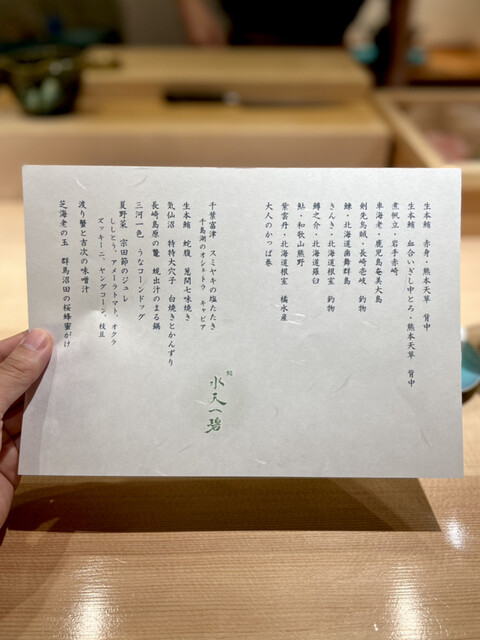 生本鮪 赤身・熊本天草 背中
生本鮪 血合いぎし中とろ・熊本天草 背中
煮帆立・岩手赤崎
車海老・鹿児島奄美大島
剣先烏賊・長崎壱岐 釣物
鰊・北海道歯舞群島
きんき・北海道根室 釣物
鱒之介・北海道羅臼
鮎・和歌山熊野
紫雲丹・北海道根室 橘水産
大人のかっぱ巻
千葉富津 スミヤキの塩たたき
千島湖のオシェトラ キャビア
生本鮪 蛇腹 葱間七味焼き
気仙沼 特特大穴子 白焼きとかんずり
長崎島原の鼈 焼出汁のまる鍋
三河一色 うなコーンドッグ
夏野菜 宗田節のジュレ
ししとう、アメーラトマト、オクラ
ズッキーニ、ヤングコーン、枝豆
渡り蟹と吉次の味噌汁
芝海老の玉 群馬沼田の桜蜂蜜がけ
鮨
水天一碧